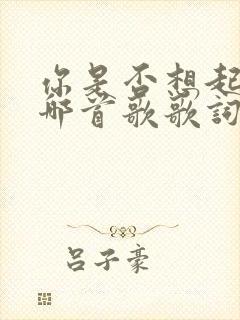 你是否想起
那首歌歌詞
吕子豪